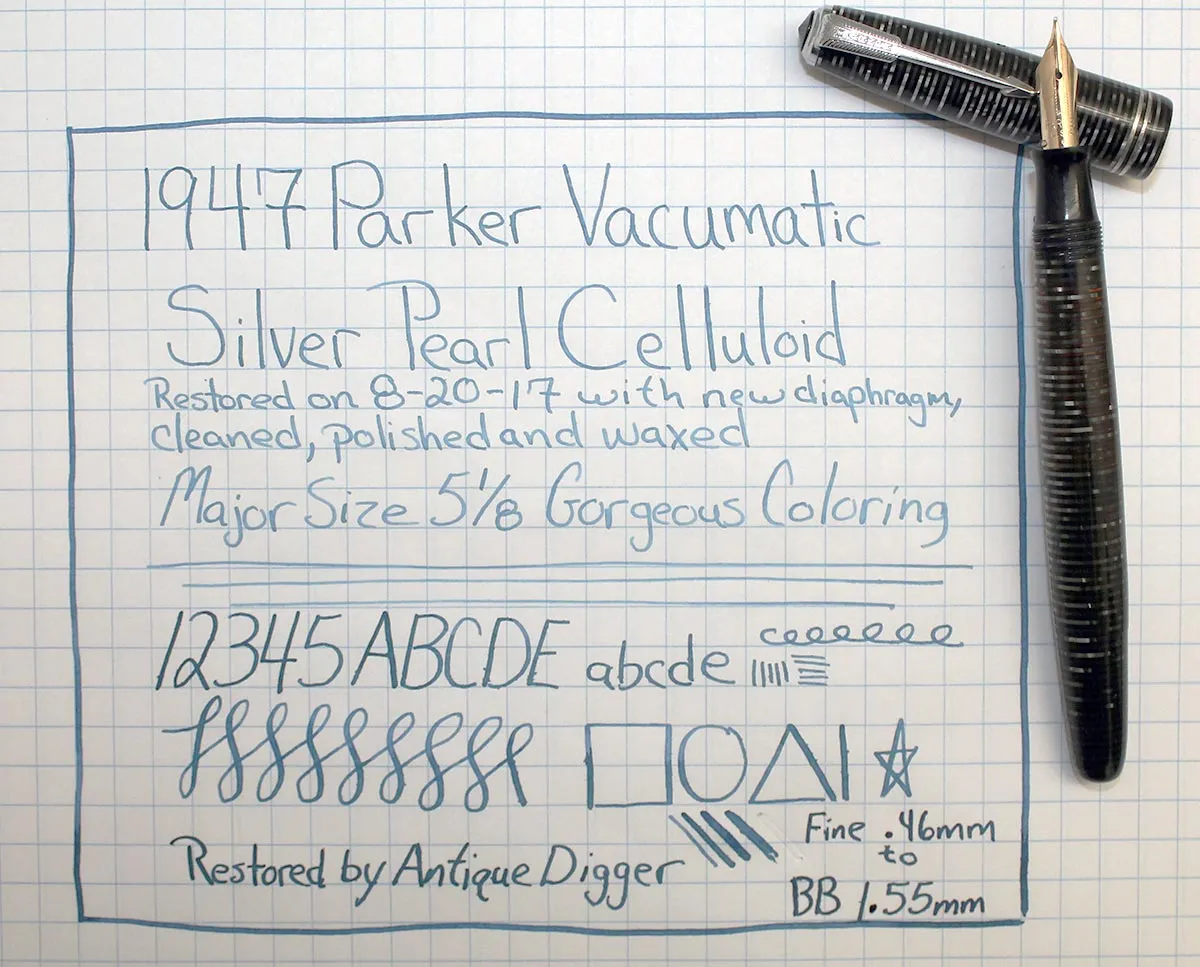 1947 Parker Vacumatic
Silver Pearl Celluloid
Restored on 8-20-17 with new diaphragm,
cleaned, polished and waxed
Major Size 5 1/8 Gorgeous Coloring
12345 ABCDE abcde
Fine .46mm
to
BB 1.55mm
Restored by Antique Digger